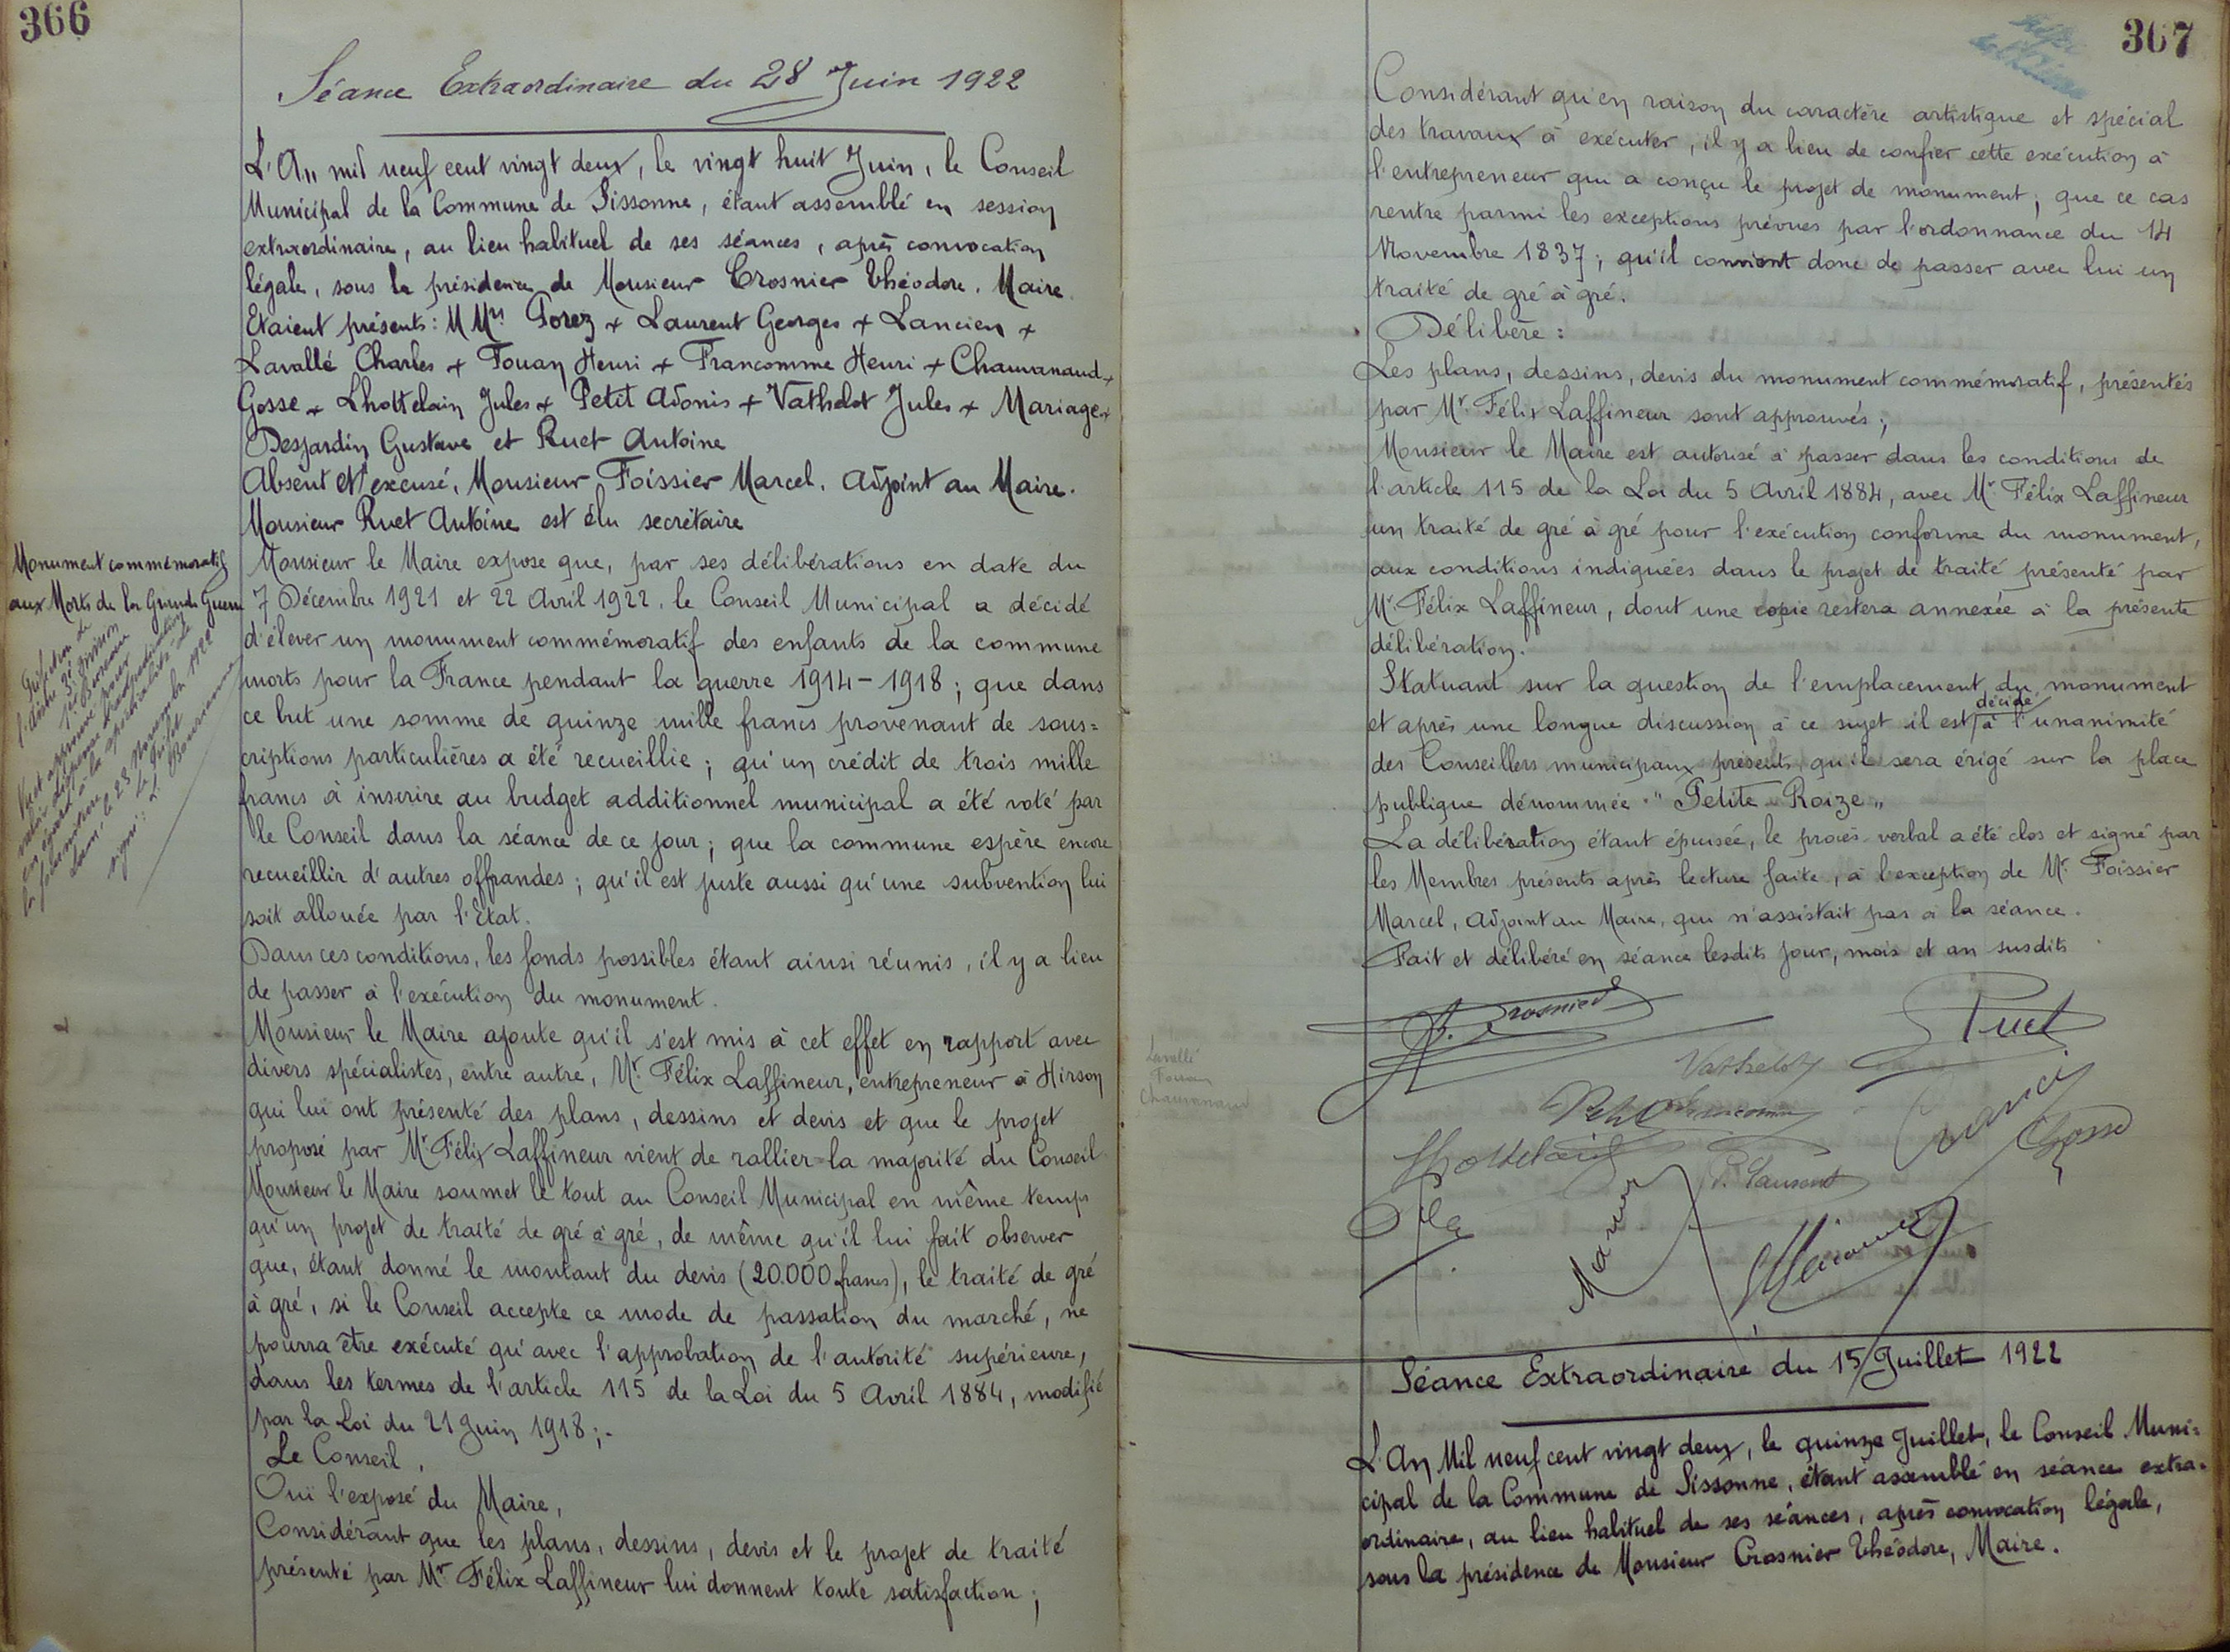 366
Séance Extraordinaire du 28 Juin 1922
L'An mil neuf cent vingt deux, le vingt huit Juin, le Conseil
Municipal de la Commune de Sissonne, étant assemblé en session
extraordinaire, au lieu habituel de ses séances, après convocation
légale, sous la présidence de Monsieur Crosnier Théodore. Maire.
Etaient présents: MMrs Porez + Laurent Georges + Lancien +
Lavallé Charles + Fouan Henri + Francomme Henri + Chauvanaud +
Gosse + Lhottelain Jules + Petit Adonis + Vathelot Jules + Mariage +
Desjardin Gustave et Ruet Antoine
Absent et excusé, Monsieur Foissier Marcel. Adjoint au Maire.
Monsieur Ruet Antoine est élu secrétaire
Monument commémoratif
aux Morts de la Grande Guerre
Préfecture de
l'Aisne 3e Division
1er Bureau
Vu et approuvé pour
valoir dispense d'adjudication
en égard à la spécialité de
la fourniture
Laon, le 28 Novembre 1922
Le Préfet
signé:
Monsieur le Maire expose que, par ses délibérations en date du
7 Décembre 1921 et 22 Avril 1922, le Conseil Municipal a décidé
d'élever un monument commémoratif des enfants de la commune
morts pour la France pendant la guerre 1914-1918; que dans
ce but une somme de quinze mille francs provenant de sous=
criptions particulières a été recueillie; qu'un crédit de trois mille
francs à inscrire au budget additionnel municipal a été voté par
le Conseil dans la séance de ce jour; que la commune espère encore
recueillir d'autres offrandes; qu'il est juste aussi qu'une subvention lui
soit allouée par l'Etat.
Dans ces conditions, les fonds possibles étant ainsi réunis, il y a lieu
de passer à l'exécution du monument.
Monsieur le Maire ajoute qu'il s'est mis à cet effet en rapport avec
divers spécialistes, entre autre, Mr. Félix Laffineur, entrepreneur à Hirson
qui lui ont présenté des plans, dessins et devis et que le projet
proposé par Mr Félix Laffineur vient de rallier la majorité du Conseil
Monsieur le Maire soumet le tout au Conseil Municipal en même temps
qu'un projet de traité de gré à gré, de même qu'il lui fait observer
que, étant donné le montant du devis (20.000 francs), le traité de gré
à gré, si le Conseil accepte ce mode de passation du marché, ne
pourra être exécuté qu'avec l'approbation de l'autorité supérieure,
dans les termes de l'article 115 de la Loi du 5 Avril 1884, modifié
par la Loi du 21 Juin 1918;-
Le Conseil,
Ouï l'exposé du Maire,
Considérant que les plans, dessins, devis et le projet de traité
présenté par Mr Félix Laffineur lui donnent toute satisfaction;
367
Considérant qu'en raison du caractère artistique et spécial
des travaux à exécuter, il y a lieu de confier cette exécution à
l'entrepreneur qui a conçu le projet de monument; que ce cas
rentre parmi les exceptions prévues par l'ordonnance du 14
Novembre 1837; qu'il convient donc de passer avec lui un
traité de gré à gré.
Délibère:
Les plans, dessins, devis du monument commémoratif, présentés
par Mr. Félix Laffineur sont approuvés;
Monsieur le Maire est autorisé à passer dans les conditions de
l'article 115 de la Loi du 5 Avril 1884, avec Mr. Félix Laffineur
un traité de gré à gré pour l'exécution conforme du monument,
aux conditions indiquées dans le projet de traité présenté par
Mr. Félix Laffineur, dont une copie restera annexée à la présente
délibération.
Statuant sur la question de l'emplacement du monument
et après une longue discussion à ce sujet il est décidé à l'unanimité
des Conseillers municipaux présents qu'il sera érigé sur la place
publique dénommée "Petite Roize"
La délibération étant épuisée, le procès-verbal a été clos et signé par
les Membres présents après lecture faite, à l'exception de Mr. Foissier
Marcel, Adjoint au Maire, qui n'assistait pas à la séance.
Fait et délibéré en séance lesdits jour, mois et an susdits
Crosnier
Ruet
Vathelot
Lavallé
Fouan
Chauvanaud
Petit
Francomme
Gosse
Lhottelain
Laurent
Séance Extraordinaire du 15 Juillet 1922
L'An Mil neuf cent vingt deux, le quinze Juillet, le Conseil Muni=
cipal de la Commune de Sissonne, étant assemblé en séance extra=
ordinaire, au lieu habituel de ses séances, après convocation légale,
sous la présidence de Monsieur Crosnier Théodore, Maire.